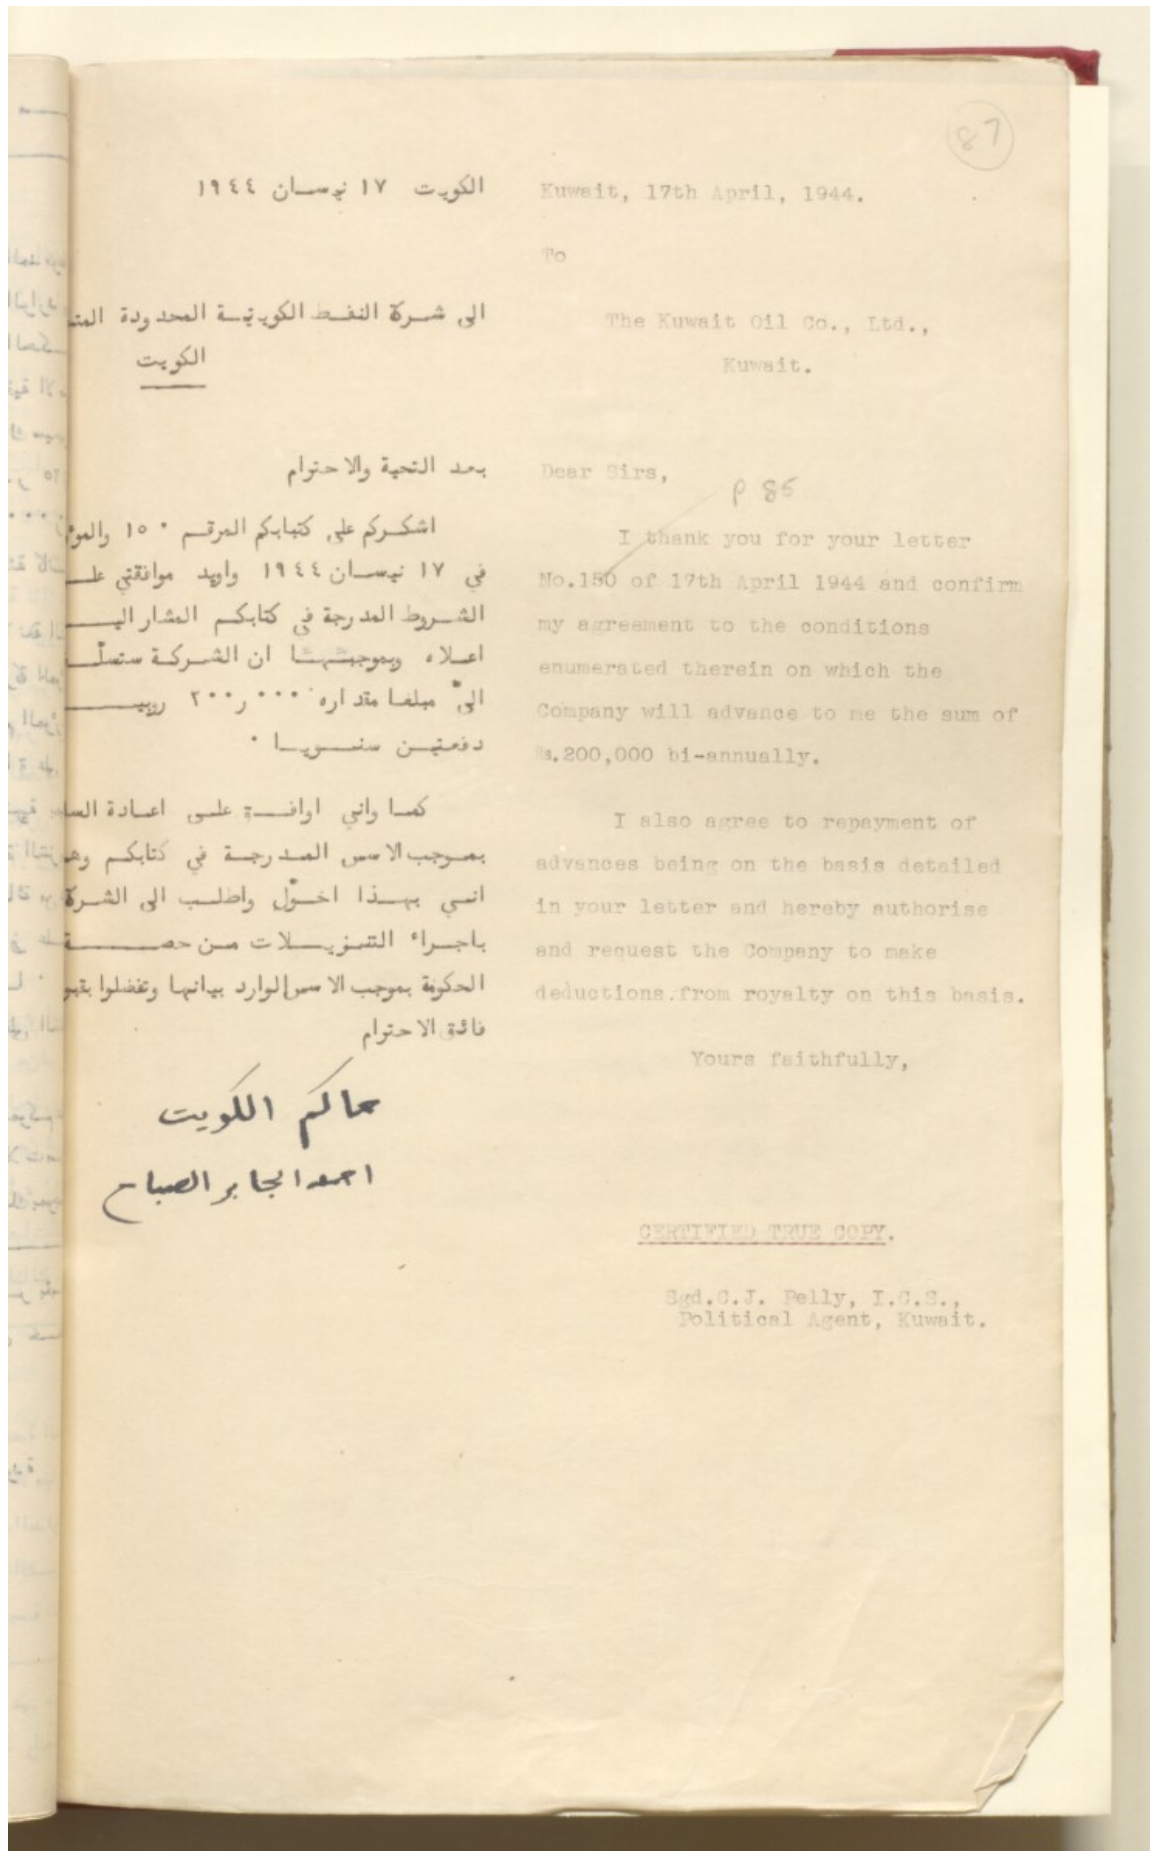 87
الكويت ١٧ نيسان ١٩٤٤
الى شركة النفط الكويتية المحدودة
الكويت
بعد التحية والاحترام
اشكركم على كتابكم المرقم ١٥٠
في ١٧ نيسان ١٩٤٤ واويد موافقتي
الشروط المدرجة في كتابكم المشار
اعلاه وبموجبها ان الشركة
اليّ مبلغا مقداره ٢٠٠ر٠٠٠
دفعتين سنويا ٠
كما واني اوافق على اعادة
بموجب الاسس المدرجة في كتابكم
انني بهذا اخوّل واطلب الى الشركة
باجراء التنزيلات من حصة
الحكومة بموجب الاسس الوارد بيانها وتفضلوا
فائق الاحترام
حاكم الكويت
احمد الجابر الصباح
Kuwait, 17th April, 1944.
To
The Kuwait Oil Co., Ltd.,
Kuwait.
Dear Sirs,
p 85
I thank you for your letter
No.150 of 17th April 1944 and confirm
my agreement to the conditions
enumerated therein on which the
Company will advance to me the sum of
Rs.200,000 bi-annually.
I also agree to repayment of
advances being on the basis detailed
in your letter and hereby authorise
and request the Company to make
deductions.from royalty on this basis.
Yours faithfully,
CERTIFIED TRUE COPY.
Sgd.C.J. Pelly, I.C.S.,
Political Agent, Kuwait.